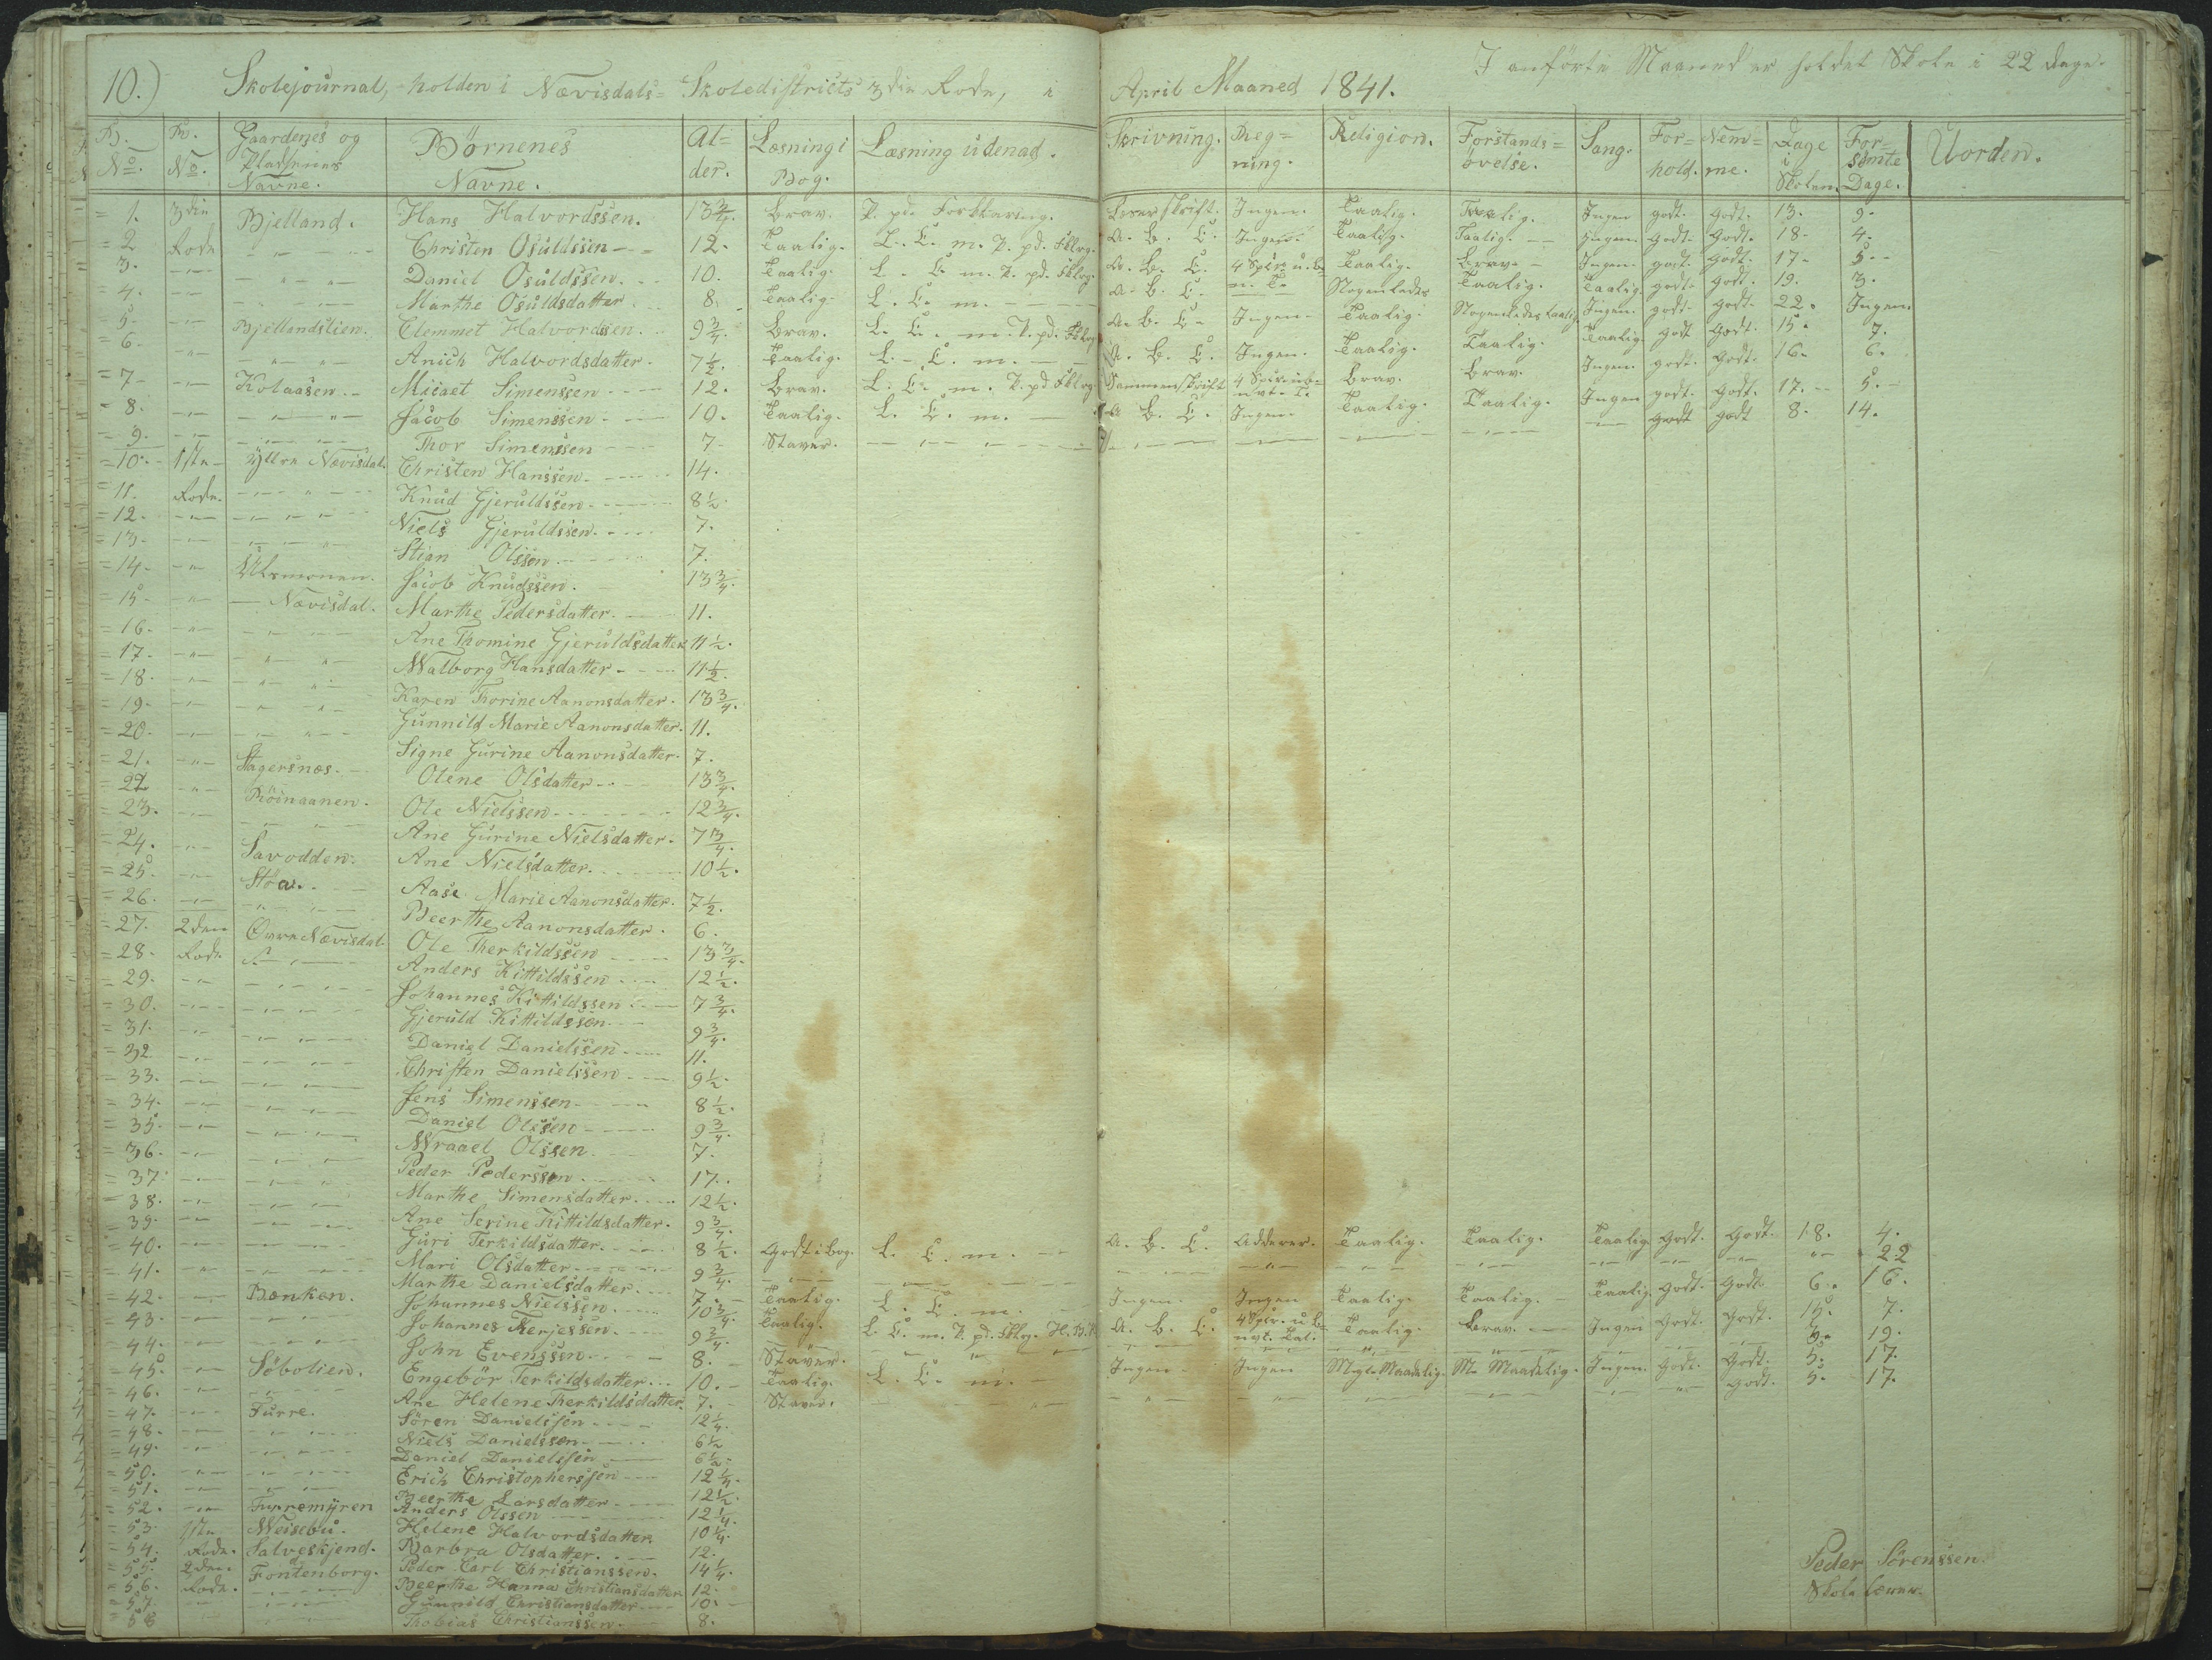 10.) Skolejournal, holden i Nævisdals= Skoledistricts 3die Rode, i April Maaned 1841.
I anförte Maaned er holdet Skole i 22 dage.
B. No. R. No. Gaardenes og Pladsernes Navne. Börnenes Navne. Al=der. Læsning i Bog. Læsning udenad. Skrivning. Reg=ning. Religion. Forstands=övelse. Sang. For=hold. Nem=me. Dage i Skolen. For=sömte Dage. Uorden.
1. 3die Bjelland. Hans Halvordssen. 13 3/4. Brav. P. pd. Forklaring. Ingen. Taalig. Taalig. Ingen godt. Godt. 13. 9.
2 Rode Christen Osuldssen 12. Taalig. L. C. m. P. pd. Fklrg. A. B. C. Ingen. Taalig. Taalig. Ingen. Godt. Godt. 18. 4.
3. Daniel Osuldssen. 10. Taalig. L. C. m. P. pd. Fklrg. A. B. C. Taalig. Brav. Ingen. godt. Godt. 17. 5.
4. Marthe Osuldsdatter 8. Taalig. L. C. m. A. B. C. Nogenledes Taalig. Taalig. godt. Godt. 19. 3.
5. Bjellandslien. Clemmet Halvordssen. 9 3/4. Brav. L. C. m. P. pd. Fklrg. A. B. C. Ingen. Taalig. Nogenledes taalig. Ingen. godt. Godt. 22. Ingen.
6. Anich Halvordsdatter. 7 1/2. Taalig. L. C. m. A. B. C. Ingen. Taalig. Taalig. Taalig. Godt Godt. 15. 7.
7. Kolaasen. Micael Simenssen 12. Brav. L. C. m. P. pd Fklrg. Sammenskrift Brav. Brav. Ingen. godt. Godt. 16. 6.
8. Jacob Simenssen 10. Taalig. L. C. m. A B. C. Ingen. Taalig. Taalig. Ingen godt. Godt. 17. 5.
9. Thor Simenssen 7. Staver. godt godt 8. 14.
10. 1ste Yttre Nævisdal. Christen Hanssen. 14.
11. Rode. Knud Gjeruldssen. 8 1/2.
12. Niels Gjeruldssen. 7.
13. Stian Olssen 7.
14. Jacob Knudssen. 13 3/4.
15. Nævisdal. Marthe Pedersdatter. 11.
16. Ane Thomine Gjeruldsdatter 11 1/2.
17. Walborg Hansdatter 11 1/2.
18. Karen Thorine Aanonsdatter. 13 3/4.
19. Gunnild Marie Aanonsdatter. 11.
20. Signe Gurine Aanonsdatter. 7.
21. Stagersnæs. Olene Olsdatter 13 3/4.
22 Röinaanen. Ole Nielssen 12 3/4.
23. Ane Gurine Nielsdatter. 7 3/4.
24. Savodden. Ane Nielsdatter. 10 1/2.
25. Stöa. Aase Marie Aanonsdatter. 7 1/2.
26. Beerthe Aanonsdatter. 6.
27. 2den Övre Nævisdal. Ole Therkildssen 13 3/4.
28. Rode Anders Kittildssen 12 1/2.
29. Johannes Kittildssen 7 3/4.
30. Gjeruld Kittildssen. 9 3/4.
31. Daniel Danielssen 11.
32 Christen Danielssen 9 1/2.
33. Jens Simenssen 8 1/2.
34. Daniel Olssen 9 3/4.
35. Wraael Olssen. 7.
36. Peder Pederssen 17.
37. Marthe Simensdatter. 12 1/2.
38. Ane Serine Kittildsdatter. 9 3/4.
39. Guri Terkildsdatter. 8 1/2. Godt i bog. L. C. m. A. B. C. Adderer. Taalig. Taalig. Taalig. Godt. Godt. 18. 4.
40. Mari Olsdatter 9 3/4. 22
41. Marthe Danielsdatter. 7. Taalig. L. C. m. Ingen. Ingen Taalig. Taalig. Taalig. Godt. Godt 6. 16.
42. Bænken. Johannes Nielssen. 10 3/4. Taalig. L. C. m. P. pd. Fklrg. A. B. C. Taalig. Brav. Ingen Godt. Godt. 15. 7.
43. Johannes Terjessen. 9 3/4. 19.
44. John Evenssen 8. Staver. Ingen. Godt. Godt. 5. 17.
45. Söbolien. Engebör Terkildsdatter. 10. Taalig. L. C. m. Ingen Ingen Godt. 5. 17.
46. Ane Helene Therkildsdatter. 7. Staver.
47. Furre. Sören Danielssen 12 1/4.
48. Niels Danielssen 6 1/2
49. Daniel Danielssen 6 1/2.
50. Erich Christopherssen 12 1/4.
51. Beerthe Larsdatter 12 1/2.
52. Furremyren Anders Olssen 12 1/4.
53. 1ste Meisebu. Helene Halvordsdatter 10 1/4.
54. Rode. Salveskjend. Barbra Olsdatter. 12.
55. 2den Fontenborg. Peder Carl Christianssen. 14 1/4.
56. Rode. Beerthe Hanna Christiansdatter 12.
57. Gunnild Christiansdatter 10.
58 Thobias Christianssen. 8.
Peder Sörenssen.
Skolelærer.